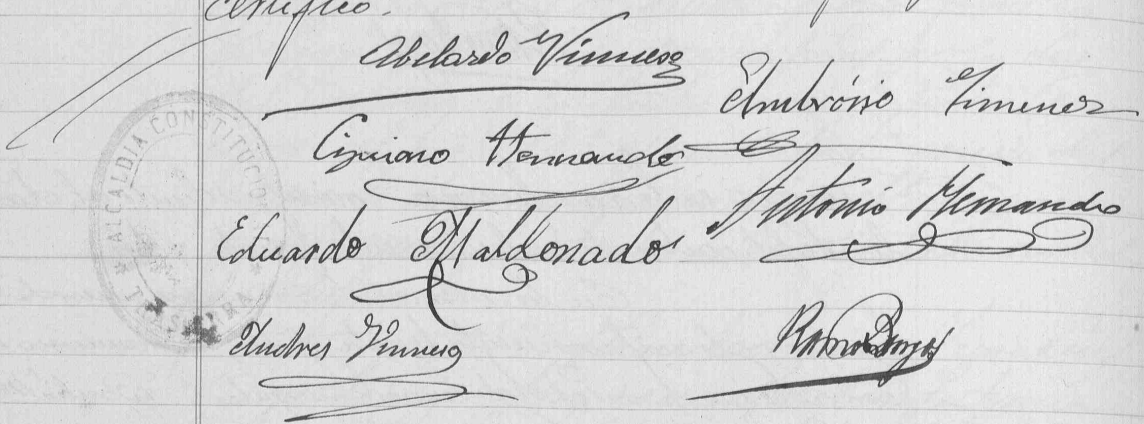 certifico.
Abelardo Vinuesa
Ambrósio Jimenez
Cipriano Hernando
Antonio Hernando
Eduardo Maldonado
Andres Vinuesa
Ramon
ALCALDIA CONSTITUCIO